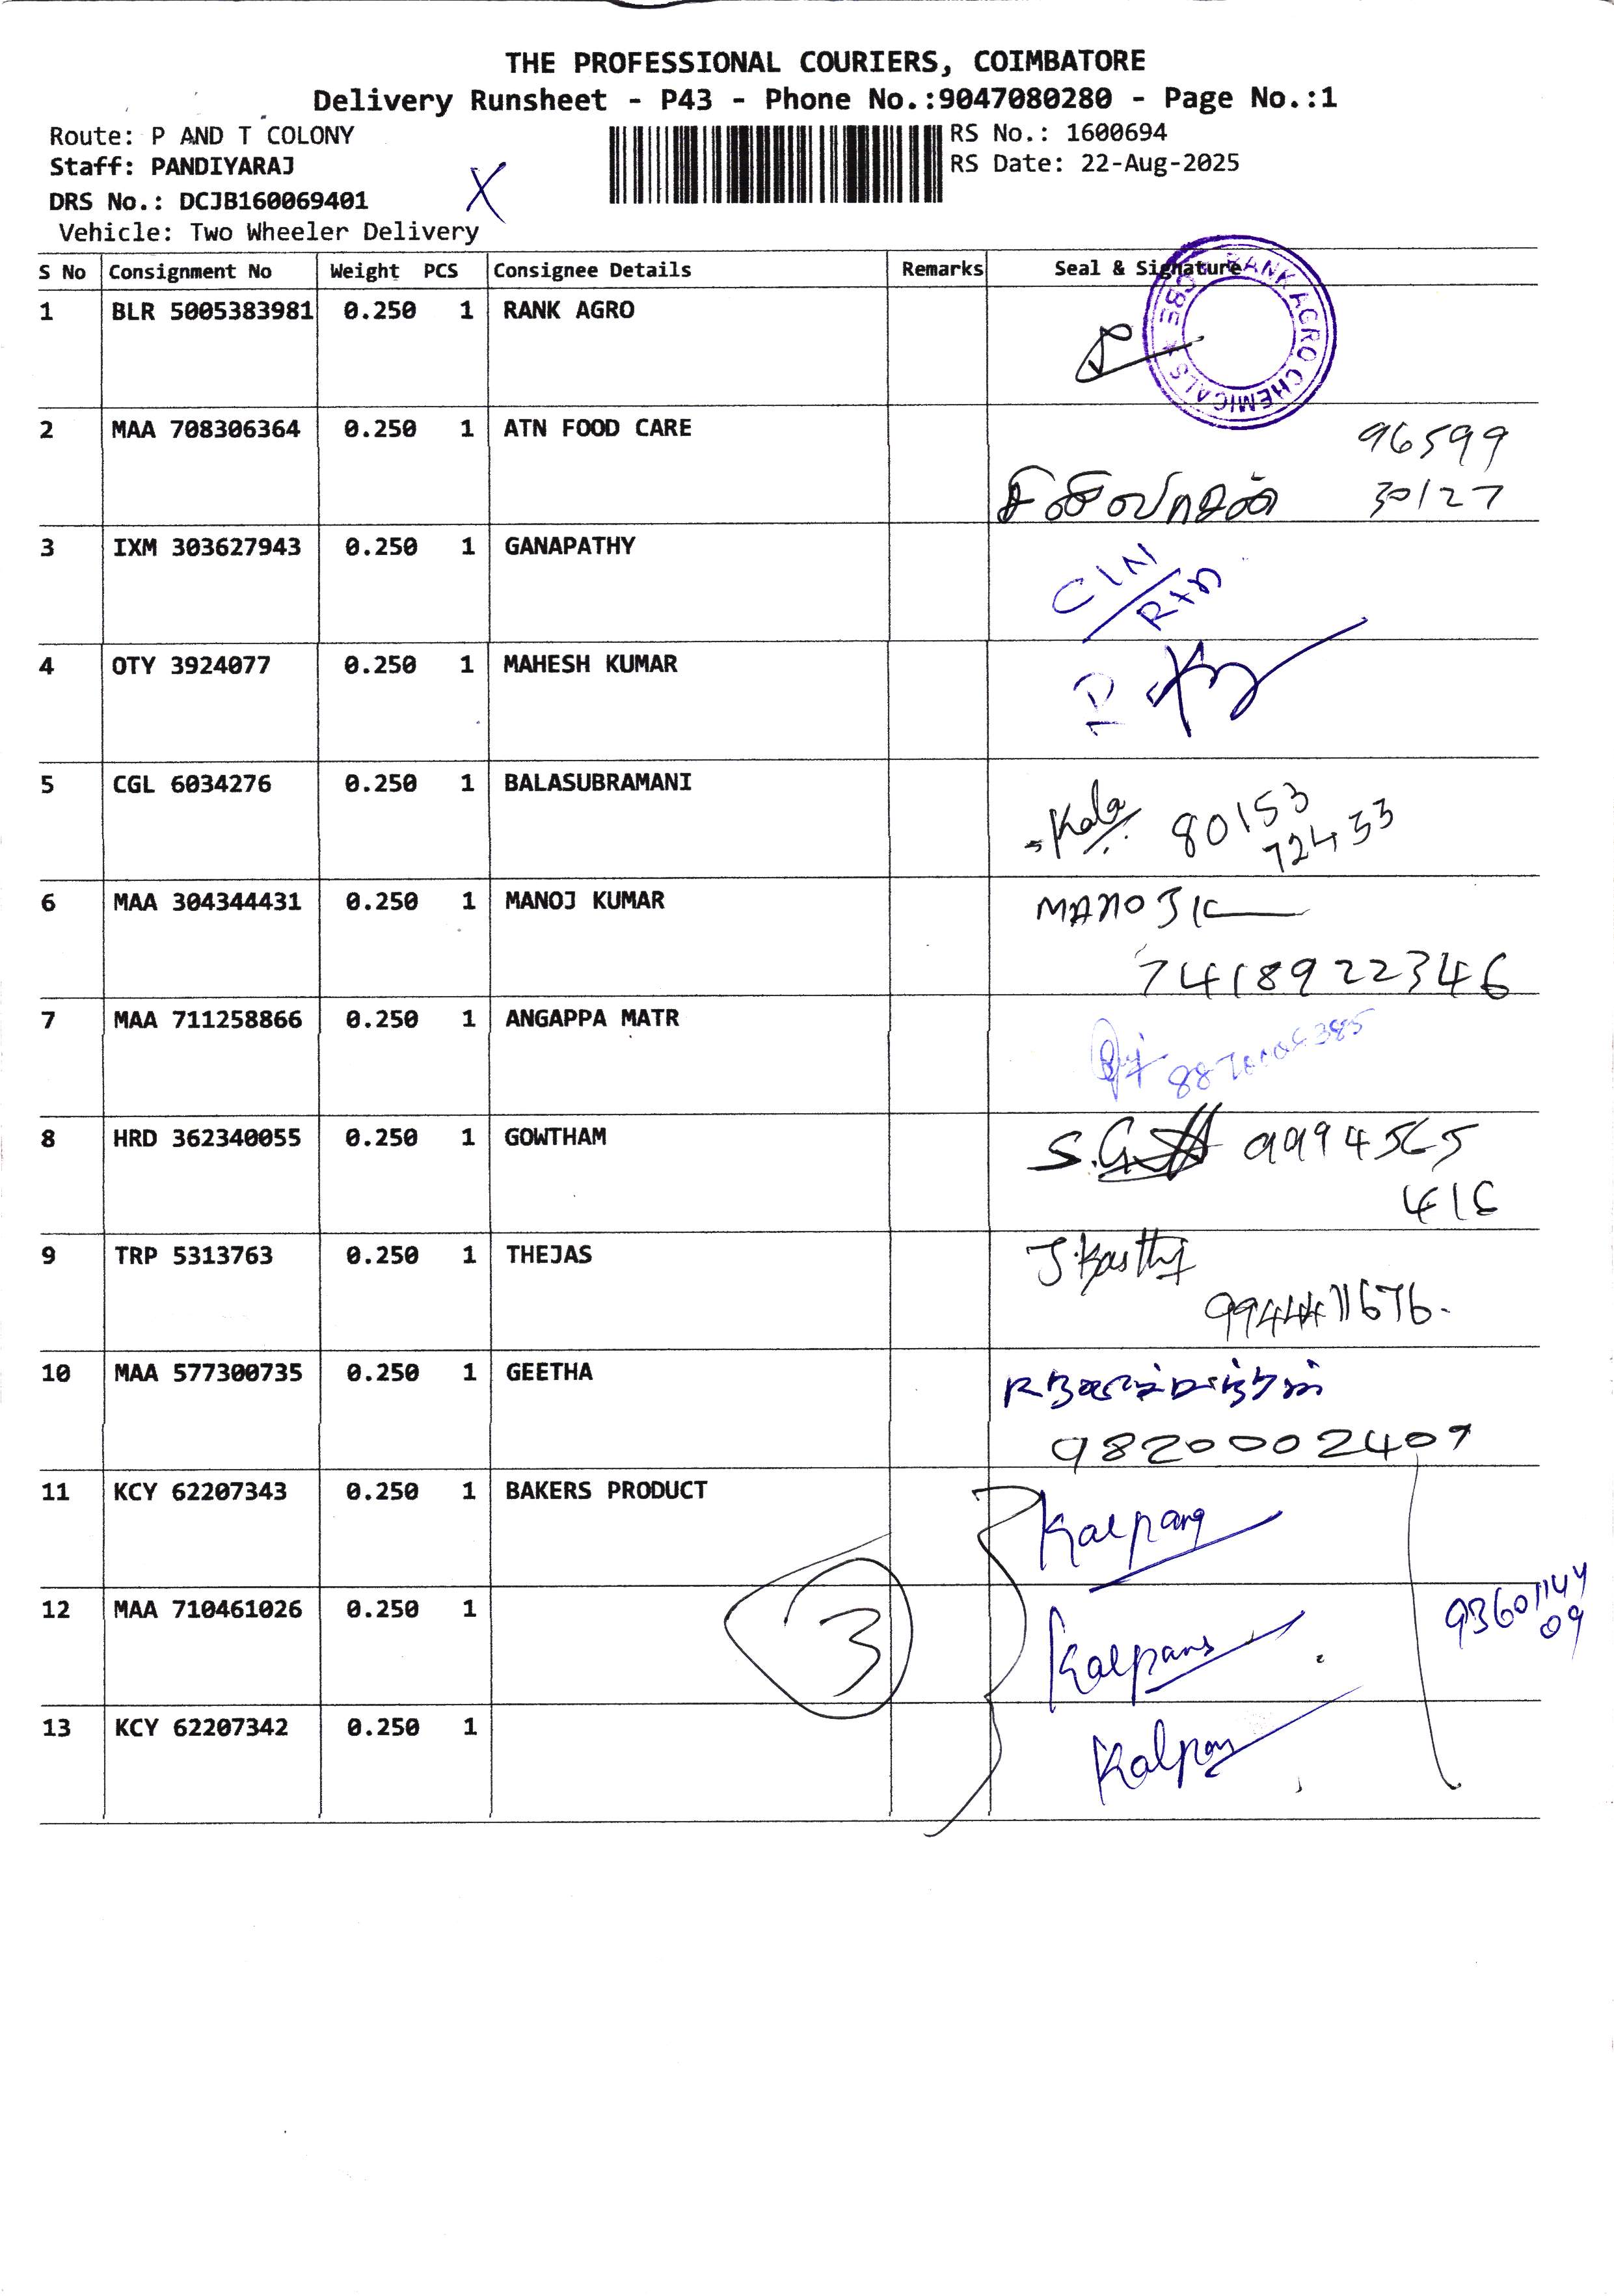 THE PROFESSIONAL COURIERS, COIMBATORE
Delivery Runsheet - P43 - Phone No.:9047080280 - Page No.:1
Route: P AND T COLONY
RS No.: 1600694
Staff: PANDIYARAJ
RS Date: 22-Aug-2025
DRS No.: DCJB160069401
X
Vehicle: Two Wheeler Delivery
S No Consignment No Weight PCS Consignee Details Remarks Seal & Signature
1 BLR 5005383981 0.250 1 RANK AGRO
RANK AGRO CHEMICALS ★ CBE ★
2 MAA 708306364 0.250 1 ATN FOOD CARE
96599
30127
3 IXM 303627943 0.250 1 GANAPATHY
4 OTY 3924077 0.250 1 MAHESH KUMAR
5 CGL 6034276 0.250 1 BALASUBRAMANI
Kala 80153
72433
6 MAA 304344431 0.250 1 MANOJ KUMAR
MANOJ K
7418922346
7 MAA 711258866 0.250 1 ANGAPPA MATR
8 HRD 362340055 0.250 1 GOWTHAM
9994565
416
9 TRP 5313763 0.250 1 THEJAS
10 MAA 577300735 0.250 1 GEETHA
9820002407
11 KCY 62207343 0.250 1 BAKERS PRODUCT
Kalpana
12 MAA 710461026 0.250 1
3
Kalpana
93601144
09
13 KCY 62207342 0.250 1
Kalpana